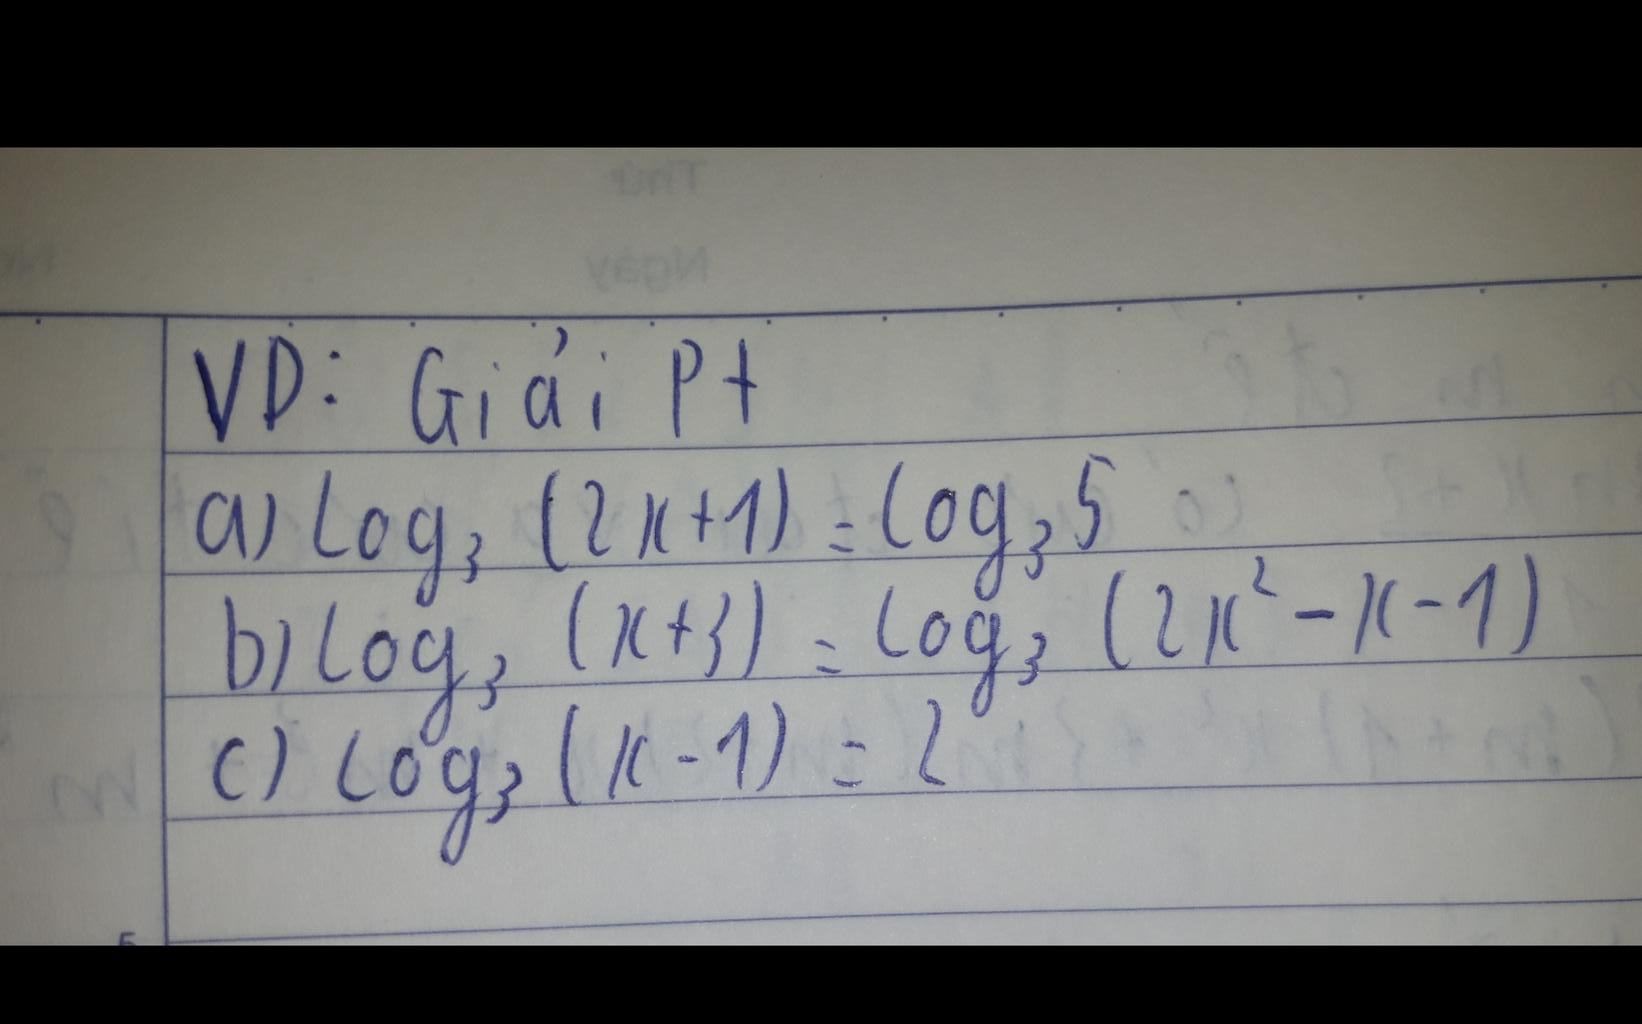 Thứ
Ngày
VD: Giải Pt
a) Log₃ (2x+1) = Log₃ 5
b) Log₃ (x+3) = Log₃ (2x² - x - 1)
c) Log₃ (x - 1) = 2